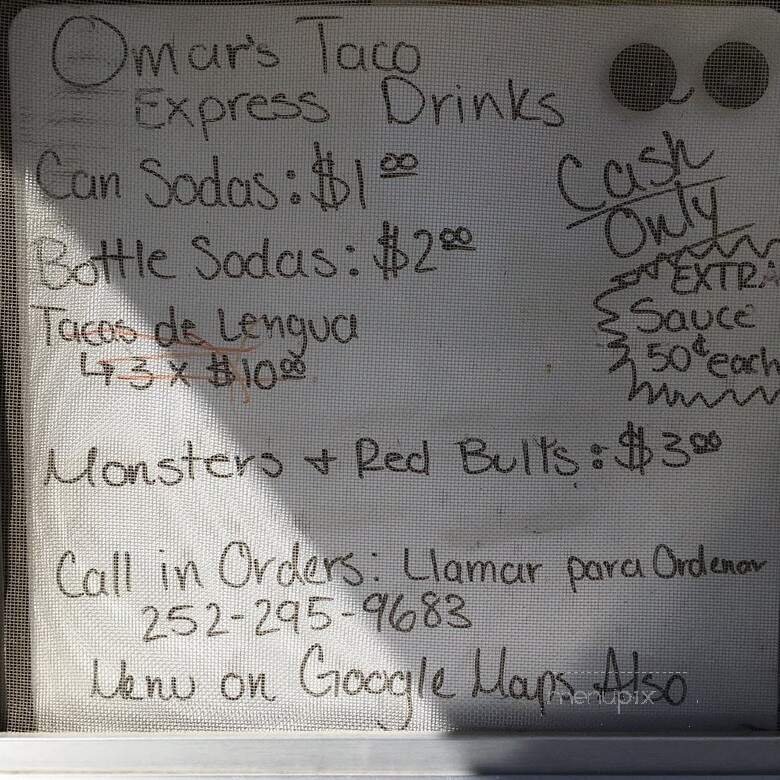 Omar's Taco
Express Drinks
Can Sodas: $1.00
Cash
Only
Bottle Sodas: $2.00
EXTRA
Sauce
50¢ each
Tacos de Lengua
↳ 3 x $10.00
Monsters + Red Bulls: $3.00
Call in Orders: Llamar para Ordenar
252-295-9683
Menu on Google Maps Also
menupix